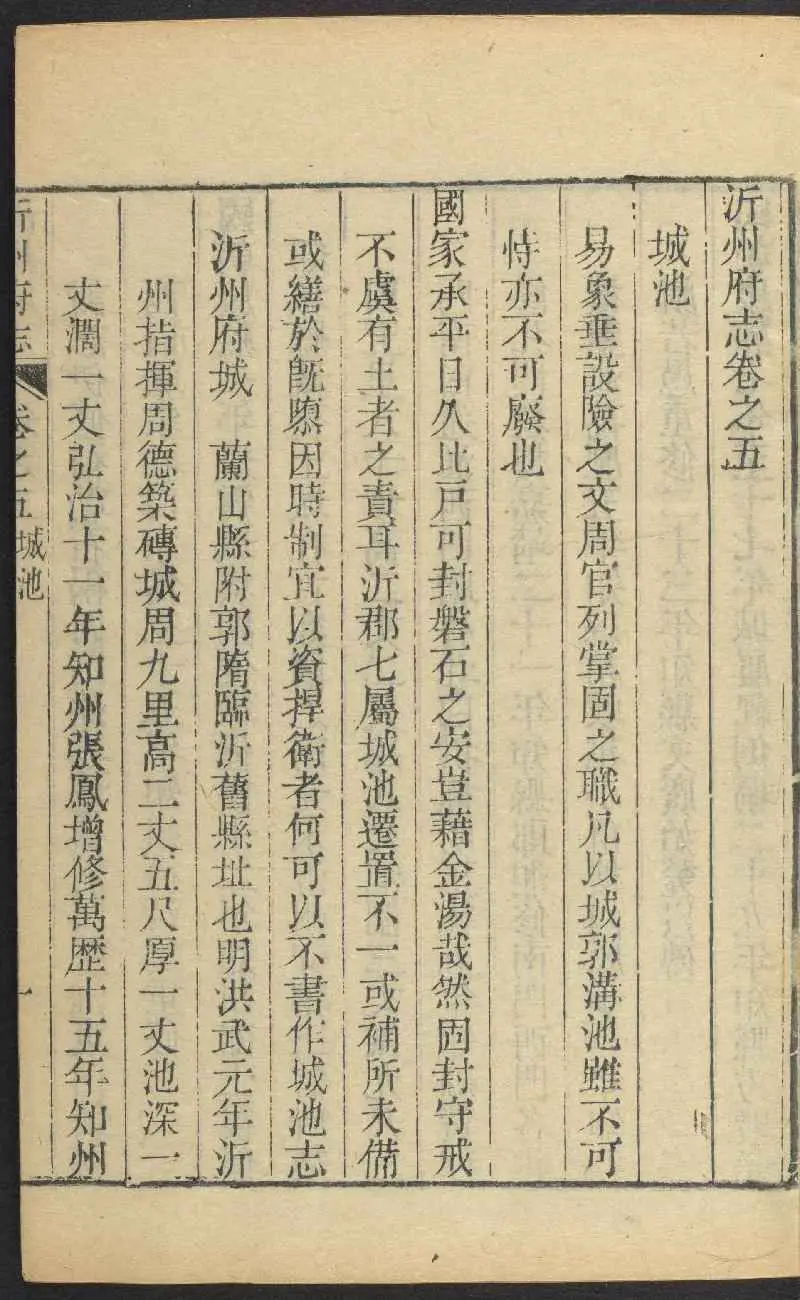 沂州府志卷之五
城池
易象垂設險之文周官列掌固之職凡以城郭溝池雖不可
恃亦不可廢也
國家承平日久比戶可封磐石之安豈藉金湯哉然固封守戒
不虞有土者之責耳沂郡七屬城池遷置不一或補所未備
或繕於旣隳因時制宜以資捍衛者何可以不書作城池志
沂州府城　蘭山縣附郭隋臨沂舊縣址也明洪武元年沂
州指揮周德築磚城周九里高二丈五尺厚一丈池深一
丈濶一丈弘治十一年知州張鳳增修萬歷十五年知州
沂州府志　卷之五　城池　一